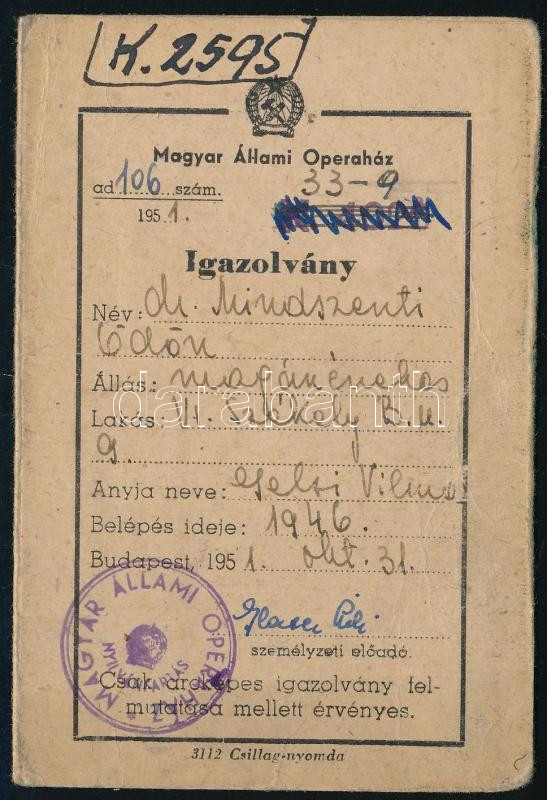 K.2595
Magyar Állami Operaház
ad 106 szám.
33-9
1951.
Igazolvány
Név: dr. Mindszenti
Ödön
Állás: magánénekes
Lakás: II. Székely B.u
9.
Anyja neve: Gelsi Vilma
Belépés ideje: 1946.
Budapest, 1951. okt. 31.
személyzeti előadó.
MAGYAR ÁLLAMI OPERAHÁZ
Csak arcképes igazolvány fel-
mutatása mellett érvényes.
3112 Csillag-nyomda
darabanth